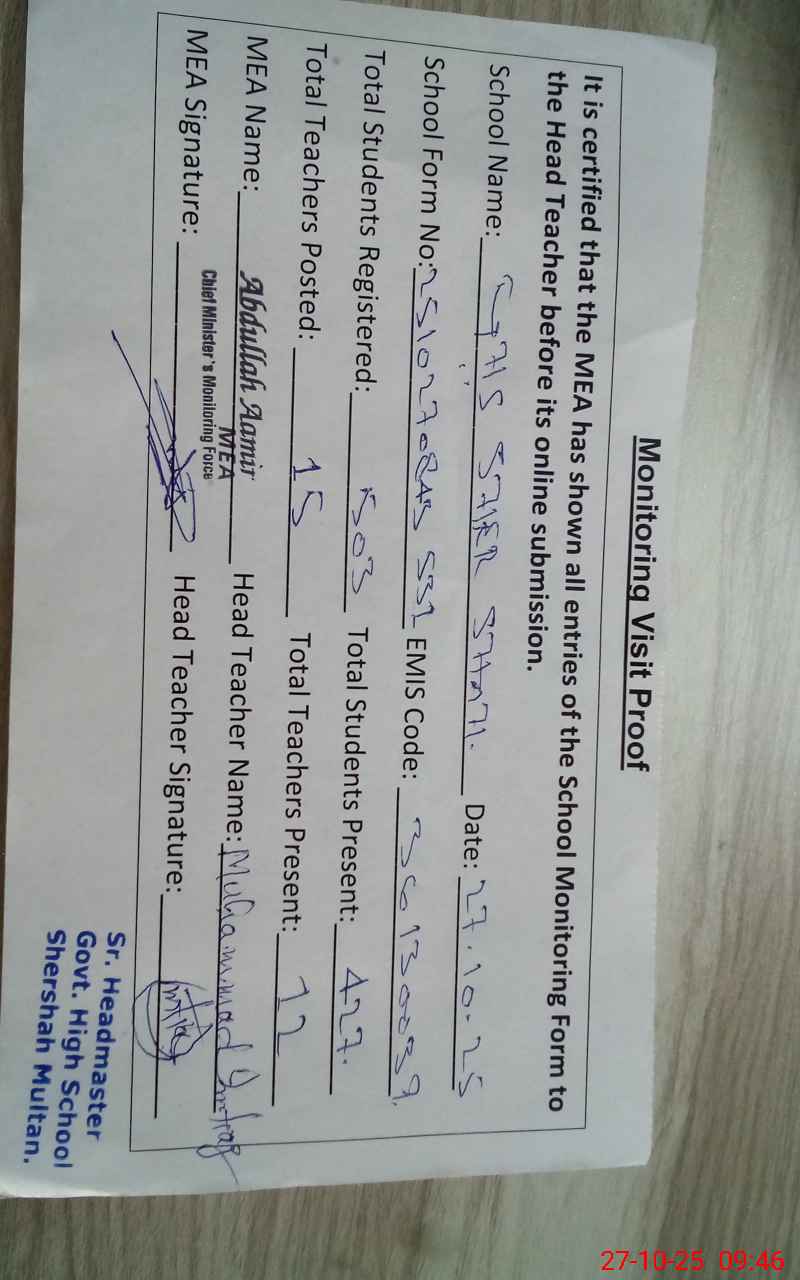 Monitoring Visit Proof
It is certified that the MEA has shown all entries of the School Monitoring Form to
the Head Teacher before its online submission.
School Name: GHS SHER SHAH. Date: 27.10.25
School Form No: EMIS Code: 36130039.
Total Students Registered: 503 Total Students Present: 427.
Total Teachers Posted: 15 Total Teachers Present: 12
MEA Name: Abdullah Aamir Head Teacher Name: Muhammad Imtiaz
MEA
Chief Minister's Monitoring Force
MEA Signature: Head Teacher Signature: Imtiaz
Sr. Headmaster
Govt. High School
Shershah Multan.
27-10-25 09:46